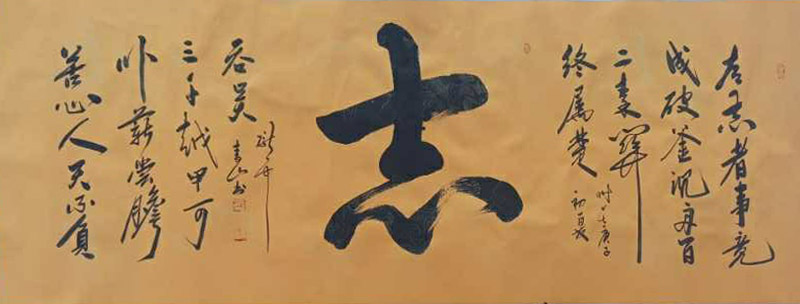 有志者事竟
成破釜沉舟百
二秦關
终属楚
庚子
初夏
志
苦心人天不負
卧薪嘗膽
三千越甲可
吞吴